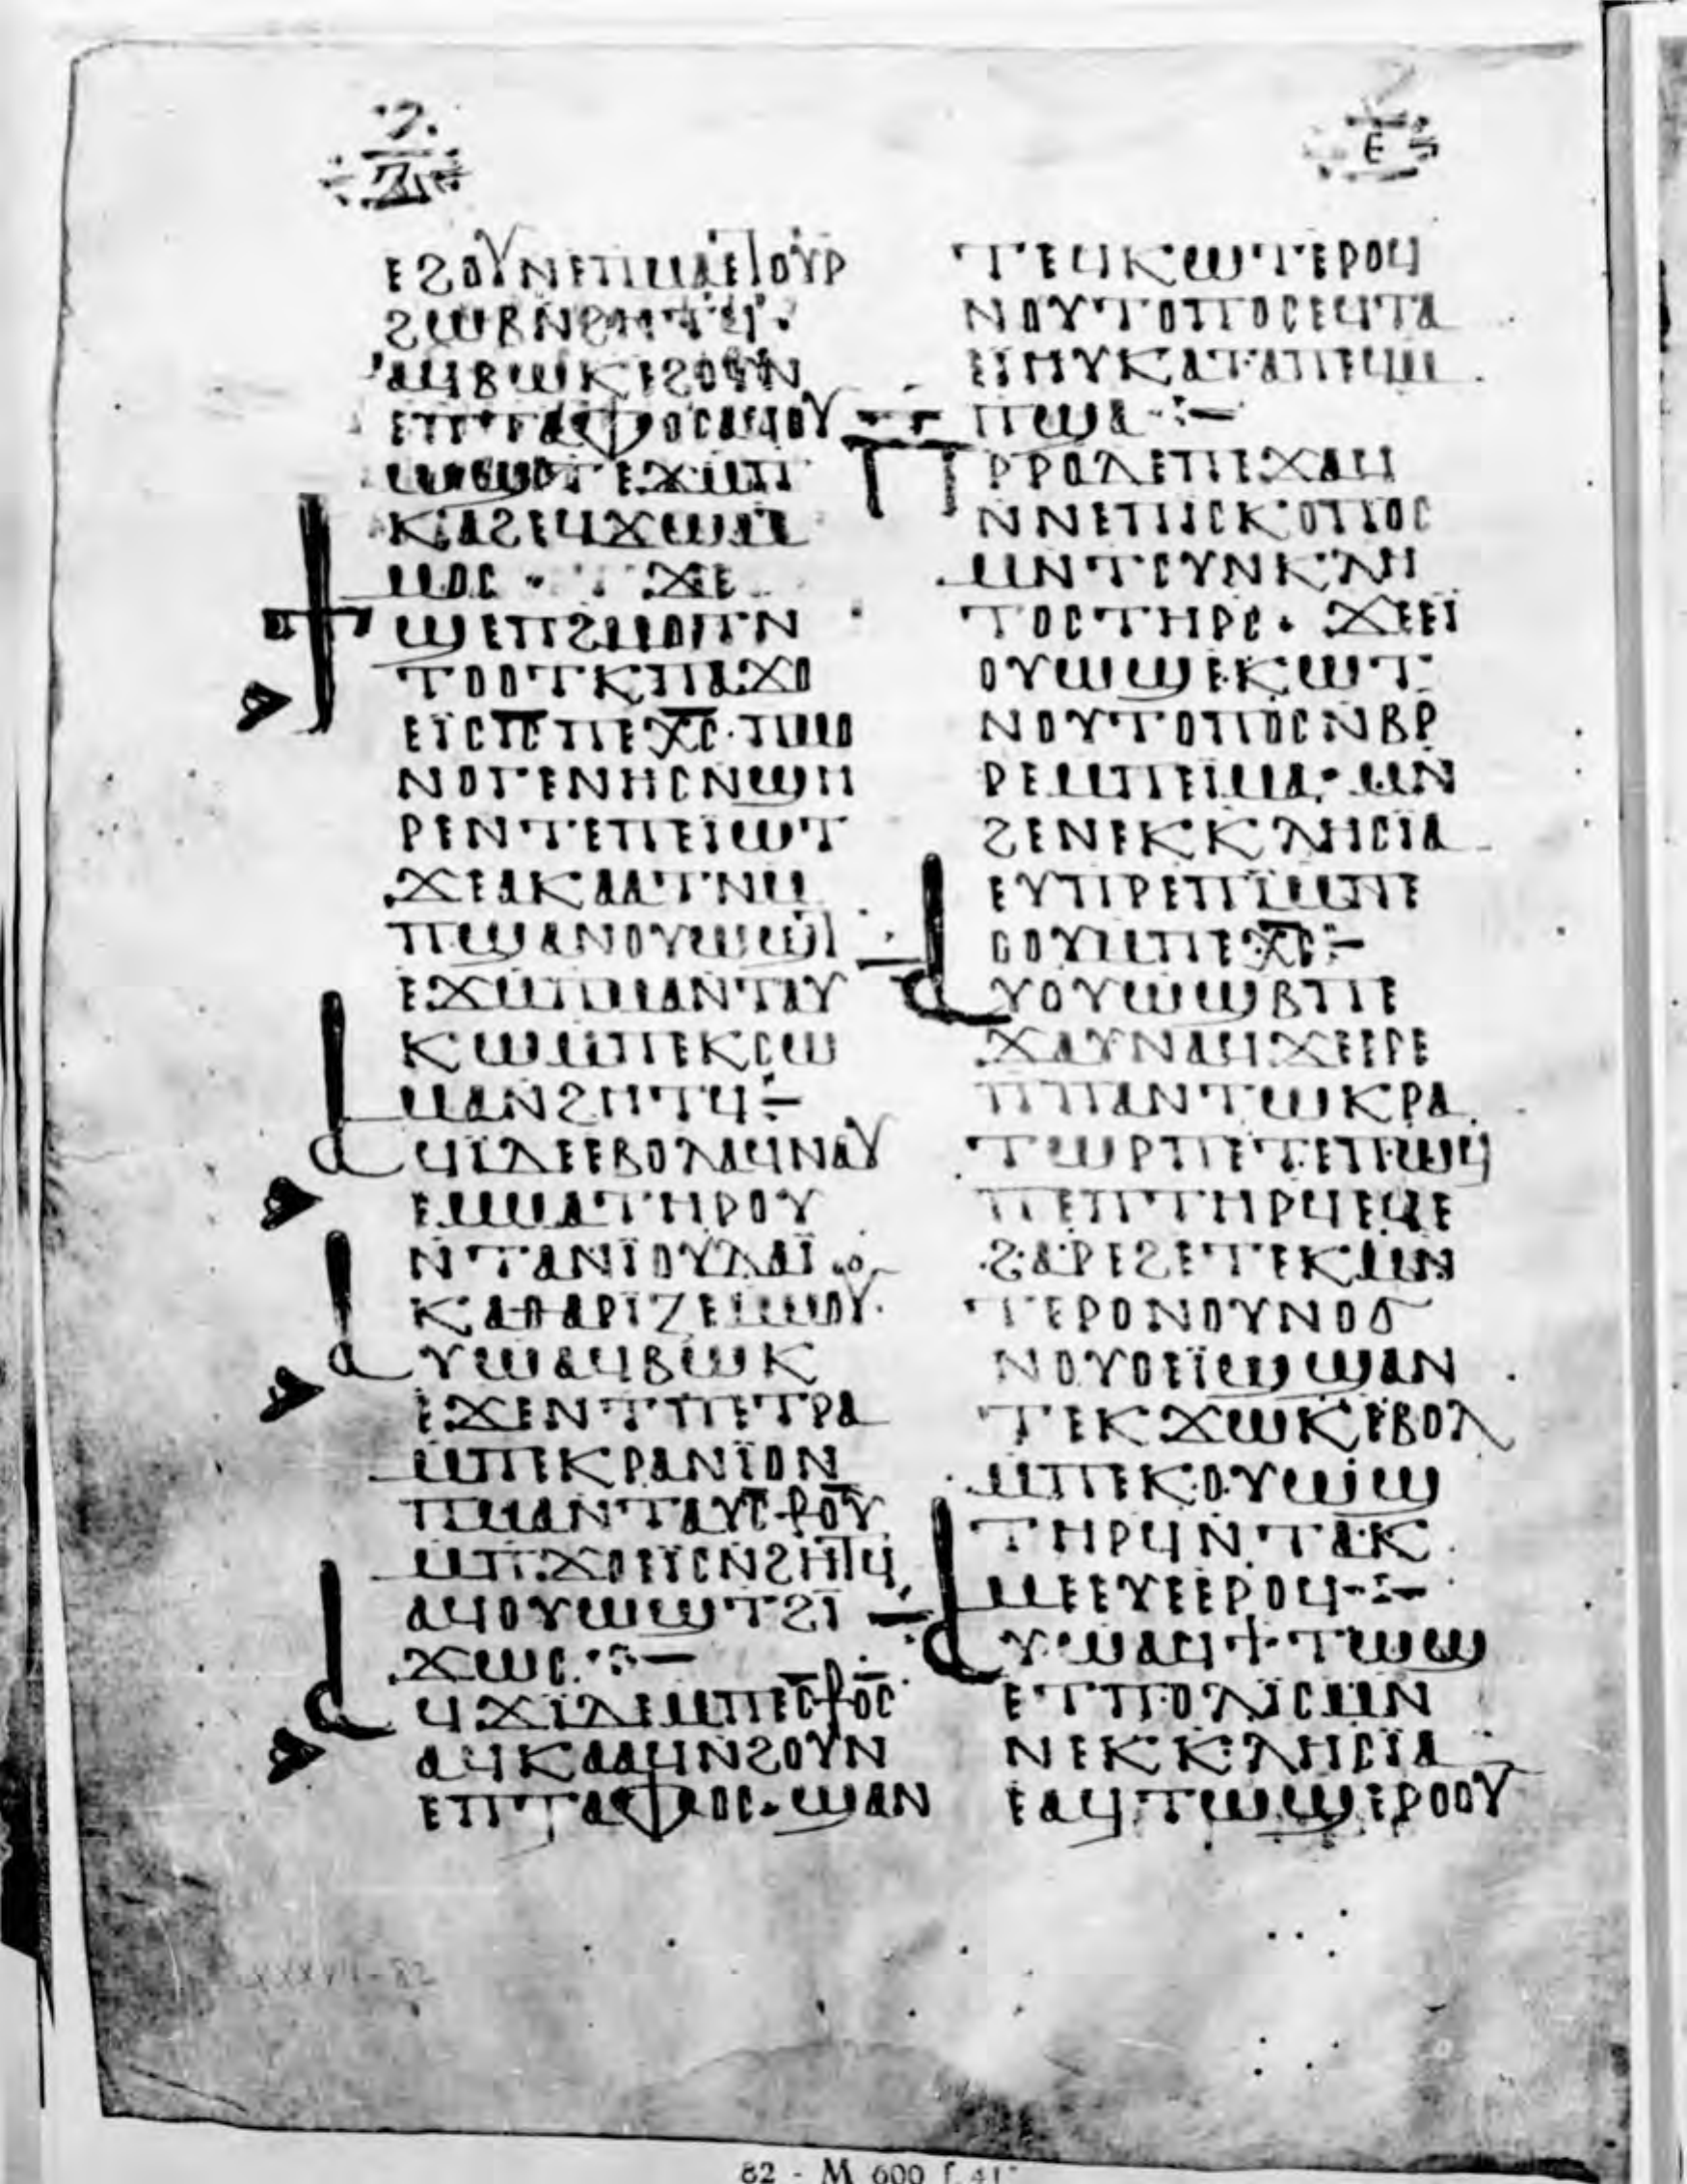 ⲉϩⲟⲩⲛⲉⲡⲙⲁⲉⲧⲟⲩⲣ
ϩⲱⲃⲛϩⲏⲧϥ·
ⲁϥⲃⲱⲕⲉϩⲟⲩⲛ
ⲉⲡⲧⲁⲫⲟⲥⲁϥⲟⲩ
ⲱϣⲧⲉϫⲙⲡ
ⲕⲁϩⲉϥϫⲱⲙ
ⲙⲟⲥ · ϫⲉ
ϯϣⲉⲡϩⲙⲟⲧⲛ
ⲧⲟⲟⲧⲕⲡⲁϫⲟ
ⲉⲓⲥⲓⲥⲡⲉⲭⲥ·ⲡⲙⲟ
ⲛⲟⲅⲉⲛⲏⲥⲛϣⲏ
ⲣⲉⲛⲧⲉⲡⲉⲓⲱⲧ
ϫⲉⲁⲕⲁⲁⲧⲛⲙ
ⲡϣⲁⲛⲟⲩⲱϣⲧ
ⲉϫⲙⲡⲙⲁⲛⲧⲁⲩ
ⲕⲱⲙⲡⲉⲕⲥⲱ
ⲙⲁⲛϩⲏⲧϥ⁖
ⲁϥⲓⲇⲉⲉⲃⲟⲗⲁϥⲛⲁⲩ
ⲉⲙⲙⲁⲧⲏⲣⲟⲩ
ⲛⲧⲁⲛⲓⲟⲩⲇⲁⲓ
ⲕⲁⲑⲁⲣⲓⲍⲉⲙⲙⲟⲩ·
ⲁⲩⲱⲁϥⲃⲱⲕ
ⲉϫⲉⲛⲧⲡⲉⲧⲣⲁ
ⲙⲡⲉⲕⲣⲁⲛⲓⲟⲛ
ⲡⲙⲁⲛⲧⲁⲩⲥ⳨ⲟⲩ
ⲙⲡϫⲟⲉⲓⲥⲛϩⲏⲧϥ
ⲁϥⲟⲩⲱϣⲧϩⲓ
ϫⲱⲥ·⁖
ⲁϥϫⲓⲇⲉⲙⲡⲉⲥ⳨ⲟⲥ
ⲁϥⲕⲁⲁϥⲛϩⲟⲩⲛ
ⲉⲡⲧⲁⲫⲟⲥ·ϣⲁⲛ
ⲧⲉϥⲕⲱⲧⲉⲣⲟϥ
ⲛⲟⲩⲧⲟⲡⲟⲥⲉϥⲧⲁ
ⲉⲓⲏⲩⲕⲁⲧⲁⲡⲉϥⲙ
ⲡϣⲁ·⁖
ⲡⲣⲣⲟⲇⲉⲡⲉϫⲁϥ
ⲛⲛⲉⲡⲓⲥⲕⲟⲡⲟⲥ
ⲙⲛⲧⲥⲩⲛⲕⲗⲏ
ⲧⲟⲥⲧⲏⲣⲥ· ϫⲉⲉⲓ
ⲟⲩⲱϣⲉⲕⲱⲧ
ⲛⲟⲩⲧⲟⲡⲟⲥⲛⲃⲣ
ⲣⲉⲙⲡⲉⲓⲙⲁ·ⲙⲛ
ϩⲉⲛⲉⲕⲕⲗⲏⲥⲓⲁ
ⲉⲩⲡⲣⲉⲡⲓⲙⲡⲉ
ⲥⲟⲩⲙⲡⲉⲭⲥ⁖
ⲁⲩⲟⲩⲱϣⲃⲡⲉ
ϫⲁⲩⲛⲁϥϫⲉⲉⲣⲉ
ⲡⲡⲁⲛⲧⲱⲕⲣⲁ
ⲧⲱⲣⲡⲉⲧⲉⲡⲱϥ
ⲡⲉⲡⲧⲏⲣϥⲉϥⲉ
ϩⲁⲣⲉϩⲉⲧⲉⲕⲙⲛ
ⲧⲉⲣⲟⲛⲟⲩⲛⲟϭ
ⲛⲟⲩⲟⲉⲓϣϣⲁⲛ
ⲧⲉⲕϫⲱⲕⲉⲃⲟⲗ
ⲙⲡⲉⲕⲟⲩⲱϣ
ⲧⲏⲣϥⲛⲧⲁⲕ
ⲙⲉⲉⲩⲉⲉⲣⲟϥ⁖
ⲁⲩⲱⲁϥϯⲧⲱϣ
ⲉⲧⲡⲟⲗⲓⲥⲙⲛ
ⲛⲉⲕⲕⲗⲏⲥⲓⲁ
ⲉⲁϥⲧⲱϣⲉⲣⲟⲟⲩ
XXXVI-82
82 - M 600 f. 41ᵛ